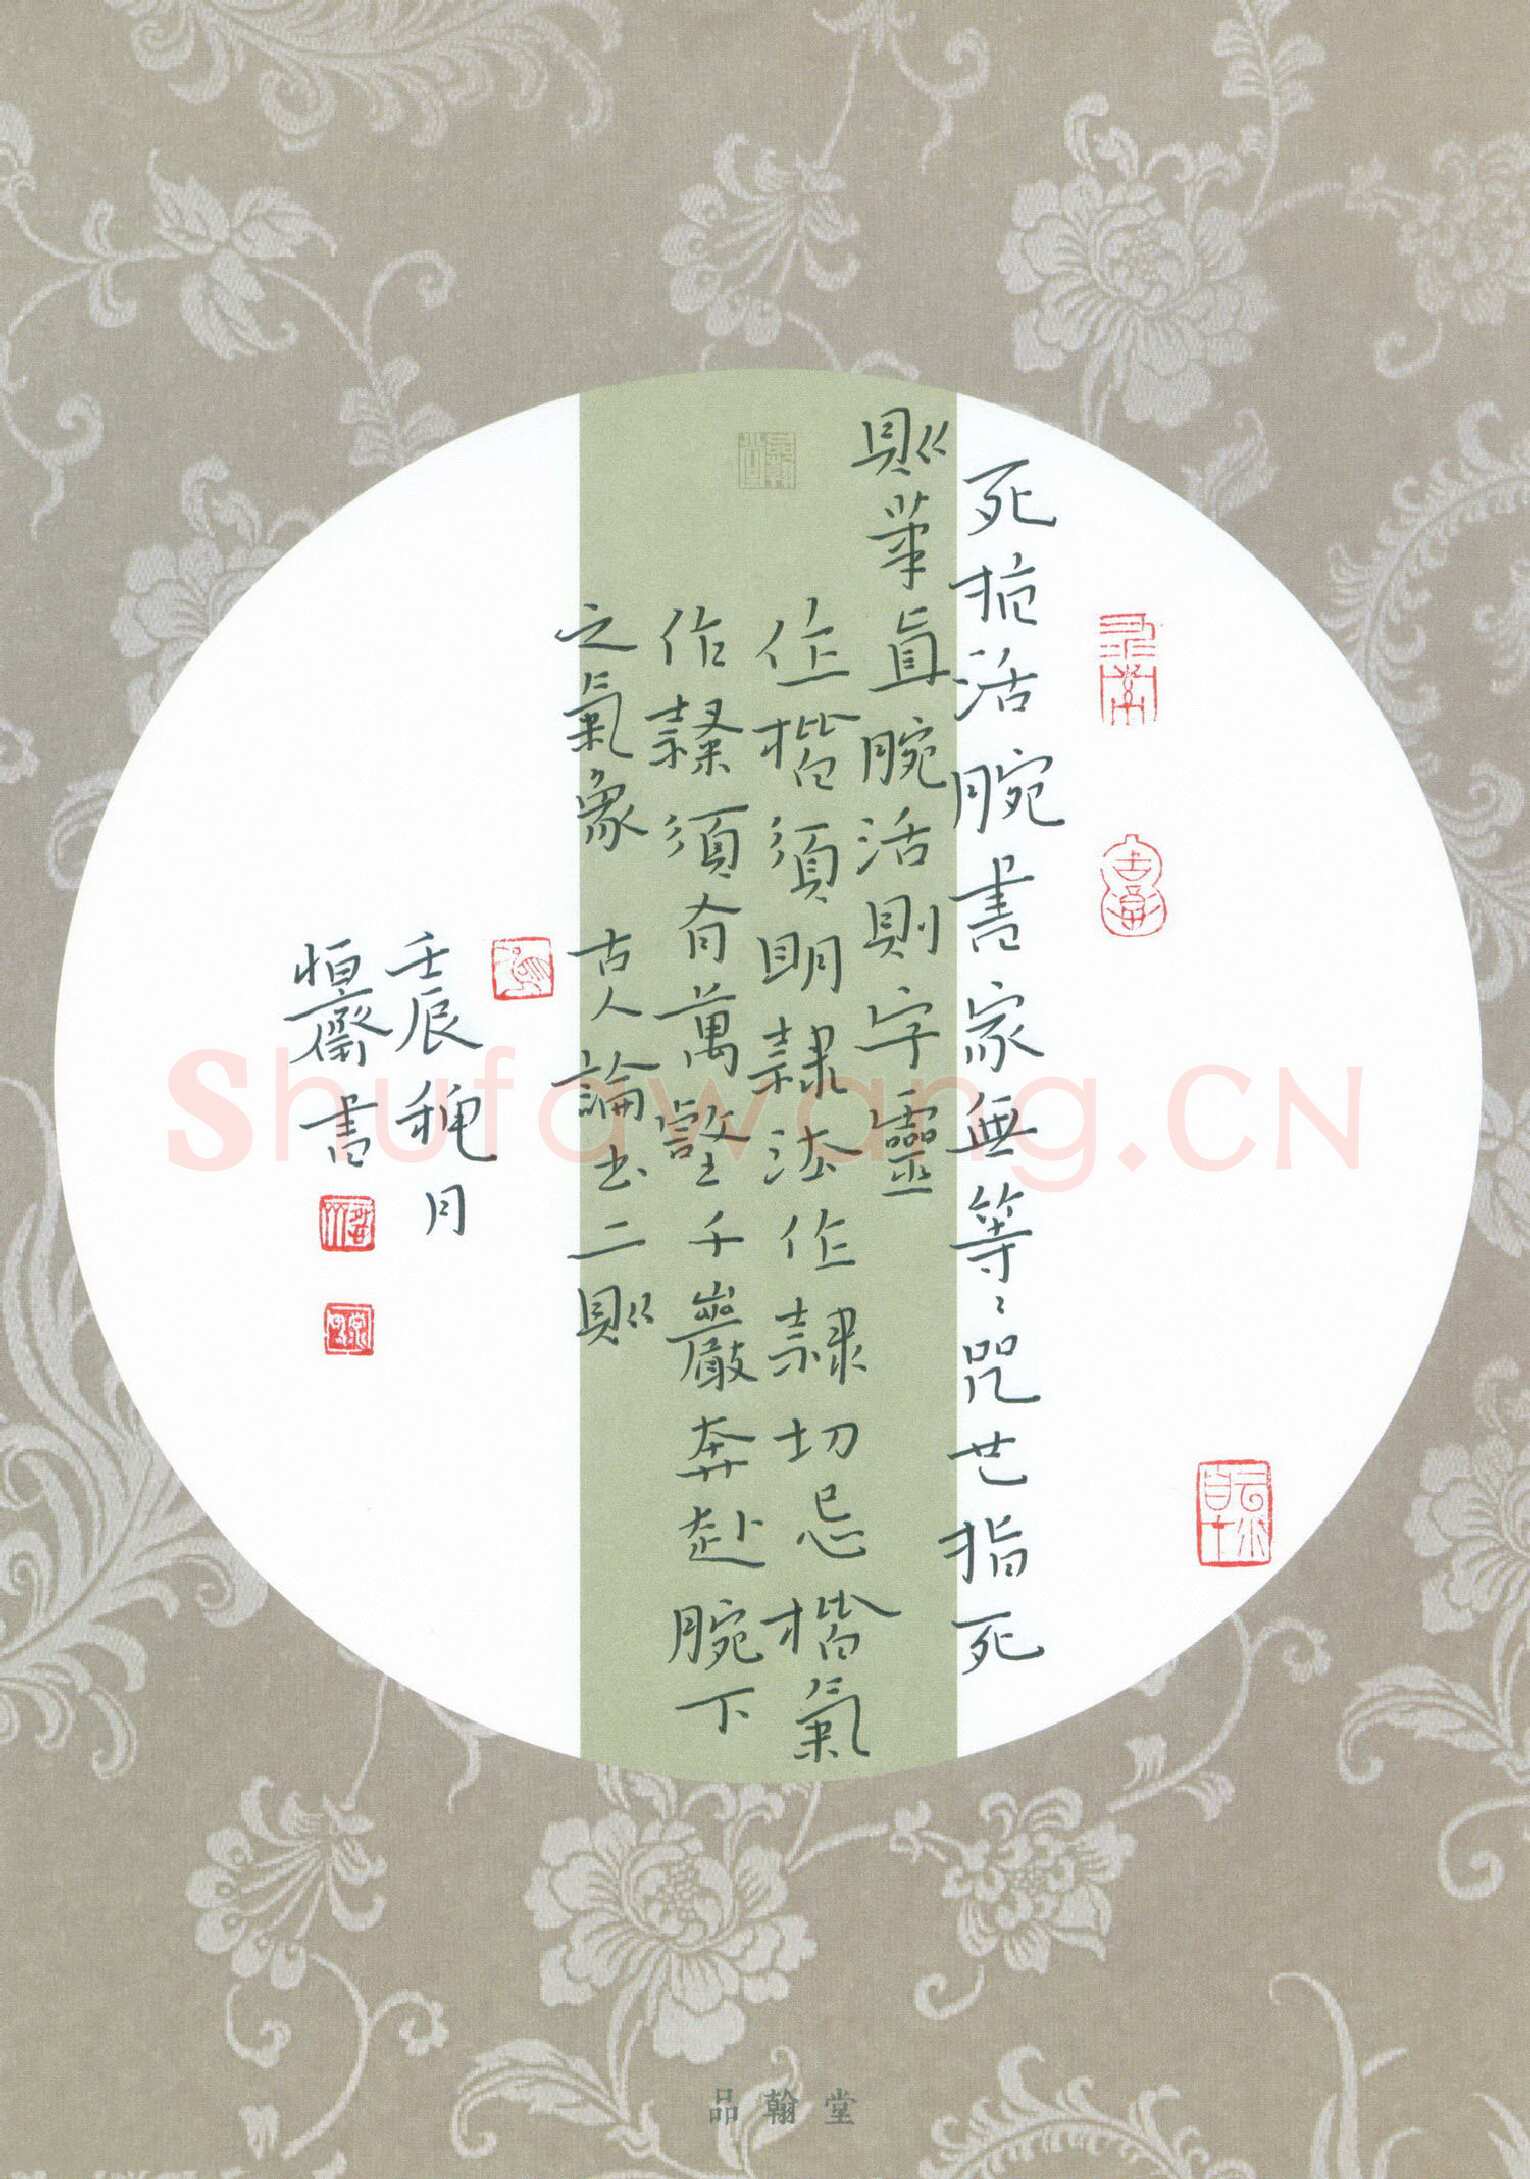 死指活腕書家無等〻咒也指死
則筆直腕活則字靈
作楷須明隸法作隸切忌楷氣
作隸須有萬壑千巖奔赴腕下
之氣象 古人論書二則
壬辰穐月
恒齋書
Shufawang.CN
品翰堂